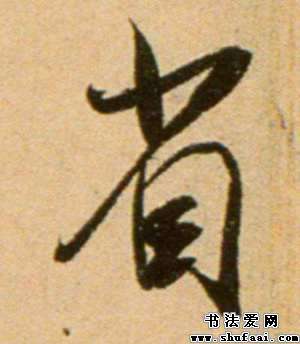 省
书法爱网
www.shufaai.com